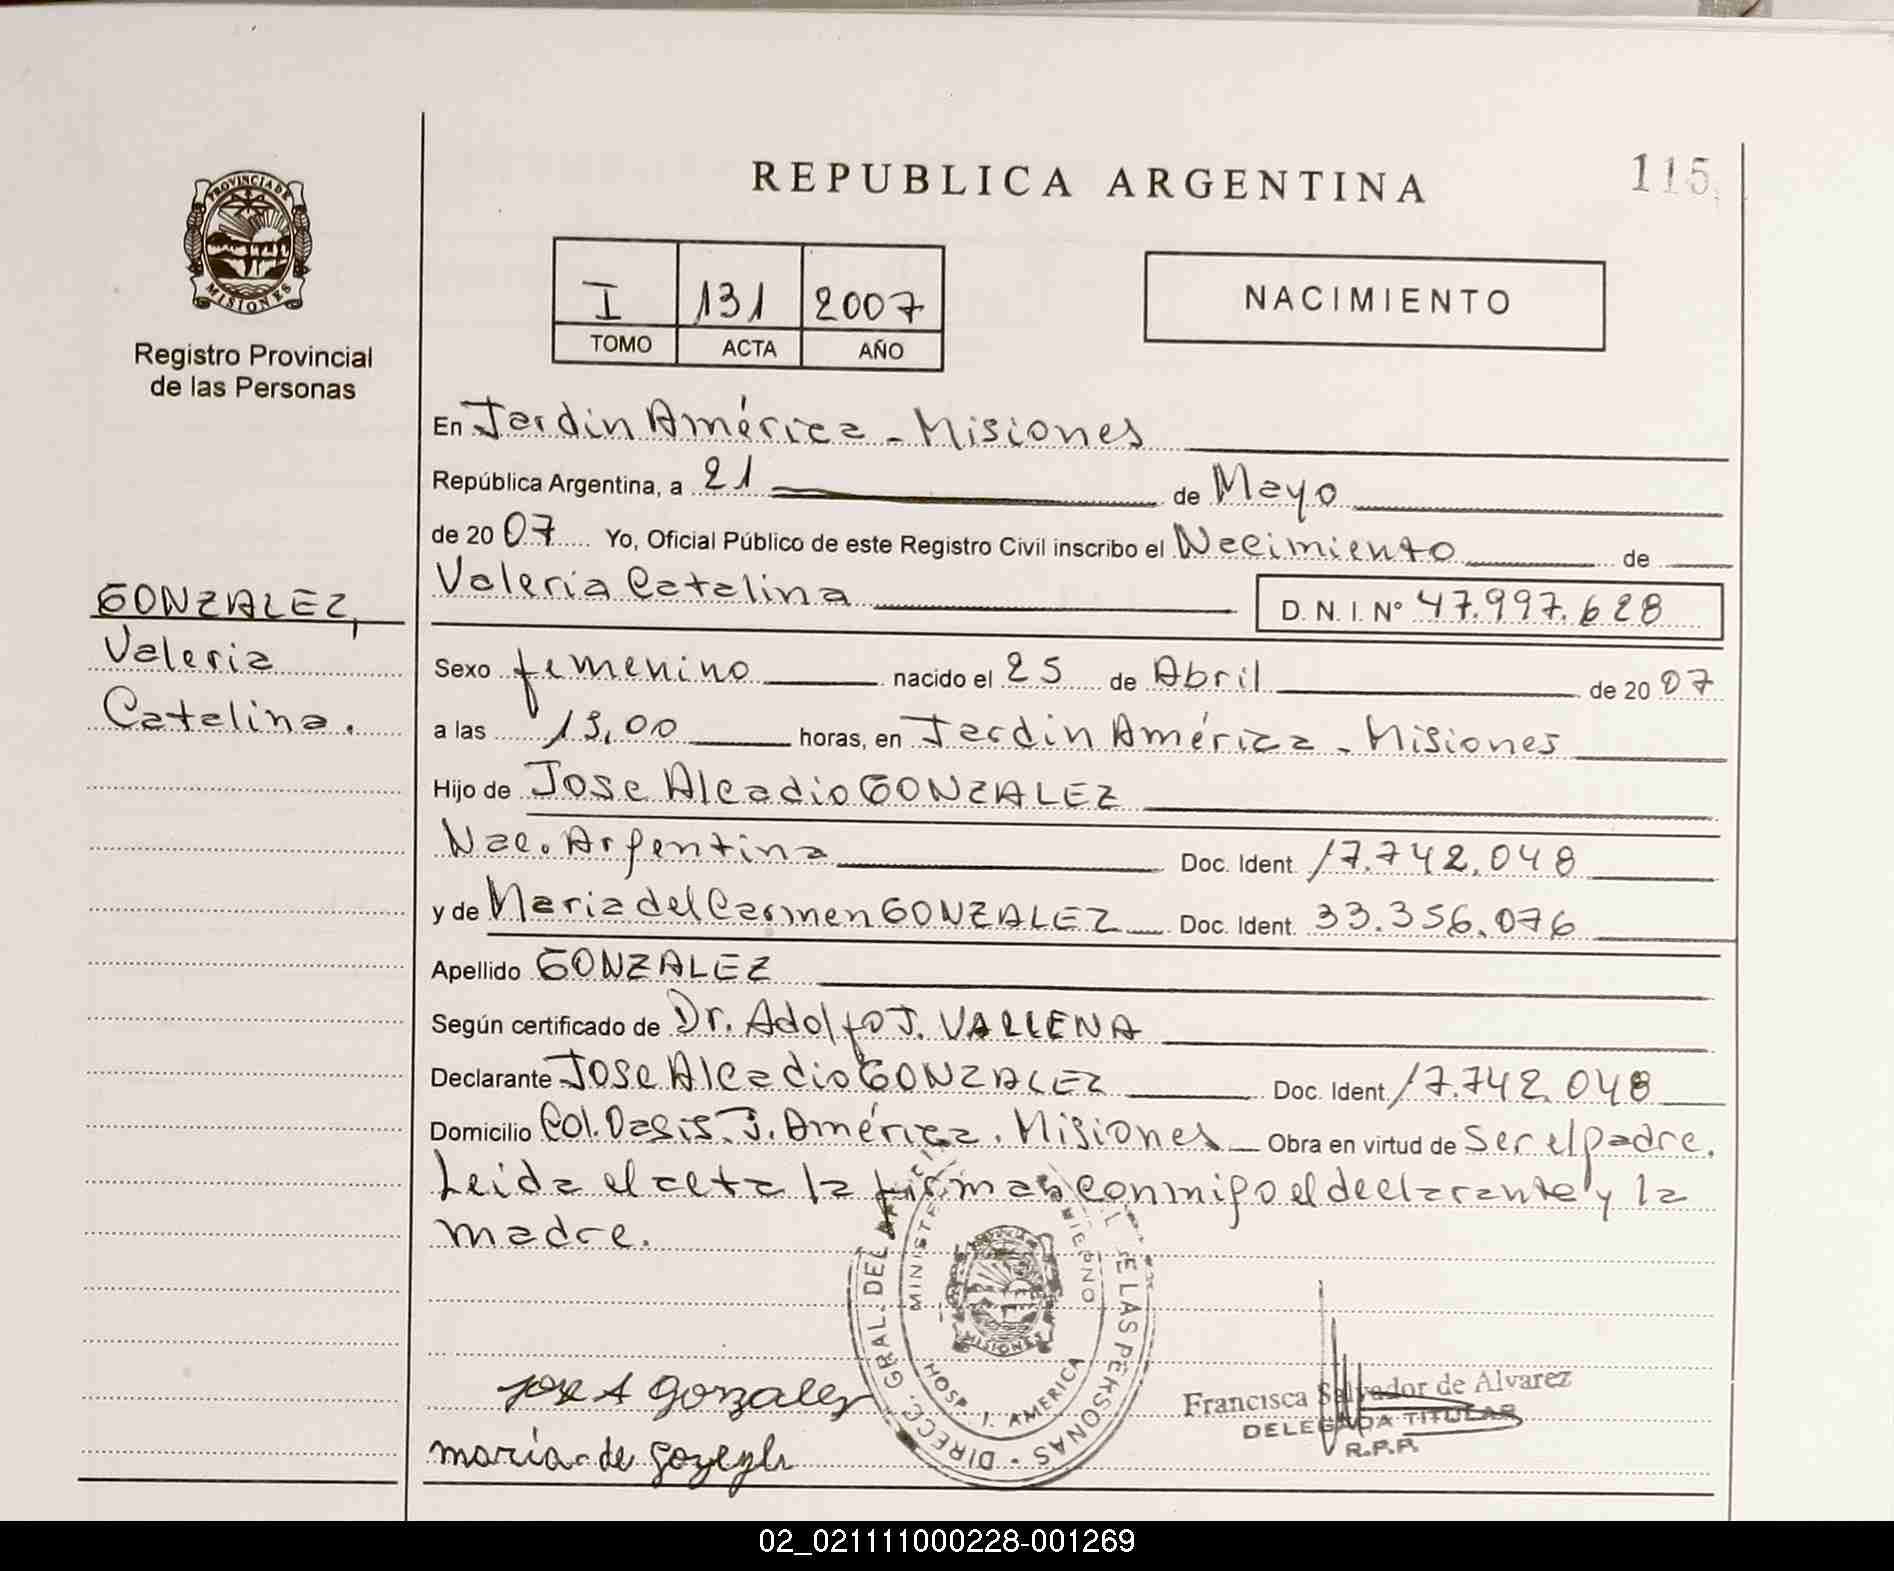 REPUBLICA ARGENTINA
115
PROVINCIA DE
MISIONES
Registro Provincial
de las Personas
I 131 2007
TOMO ACTA AÑO
NACIMIENTO
En Jardin América - Misiones
República Argentina, a 21 de Mayo
de 2007 Yo, Oficial Público de este Registro Civil inscribo el Nacimiento de
Valeria Catalina D. N. I. Nº 47.997.628
GONZALEZ,
Valeria
Catalina.
Sexo femenino nacido el 25 de Abril de 2007
a las 13,00 horas, en Jardin América - Misiones
Hijo de Jose Alcadio GONZALEZ
Nac. Argentina Doc. Ident. 17.742.048
y de Maria del Carmen GONZALEZ Doc. Ident. 33.356.076
Apellido GONZALEZ
Según certificado de Dr. Adolfo J. VALLENA
Declarante Jose Alcadio GONZALEZ Doc. Ident 17.742.048
Domicilio Col. Oasis. J. América. Misiones Obra en virtud de Ser el padre.
Leida el acta la firman conmigo el declarante y la
madre.
DIRECC. GRAL. DEL DE LAS PERSONAS
HOSP. J. AMERICA
MISIONES
Jose A Gonzalez
maria de
Francisca Salvador de Alvarez
DELEGADA TITULAR
R.P.P.
02_021111000228-001269